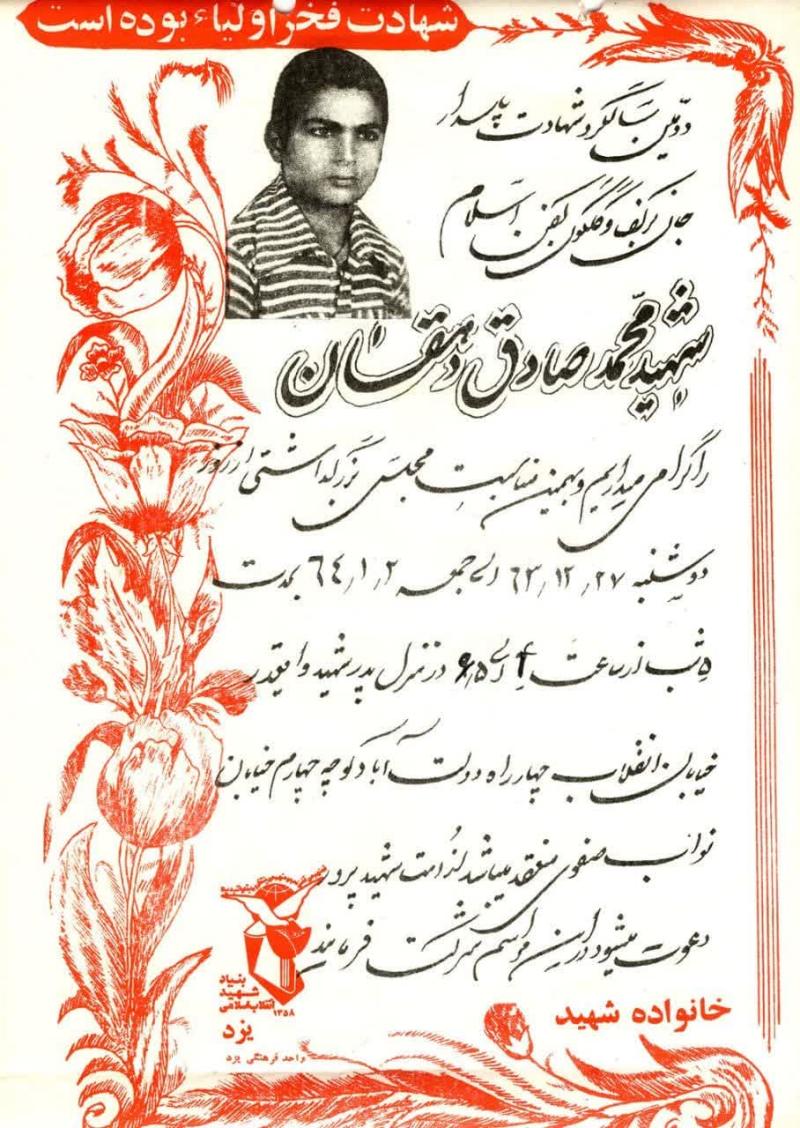 شهادت فخر اولیاء بوده است
دوّمین سالگرد شهادت پاسدار
جان برکف و گلگون کفن اسلام
شهید محمّد صادق دهقان
را گرامی میداریم و بهمین مناسبت مجلس بزرگداشتی از روز
دوشنبه ۶۳٫۱۲٫۲۷ الی جمعه ۶۴٫۱٫۲ بمدت
۵ شب از ساعت الی در منزل پدر شهید واقع در
خیابان انقلاب چهارراه دولت آباد کوچه چهارم خیابان
نواب صفوی منعقد میباشد لذا از امت شهید پرور
دعوت میشود در این مراسم شرکت فرمایند
خانواده شهید
بنیاد
شهید
انقلاب اسلامی
۱۳۵۸
یزد
واحد فرهنگی یزد